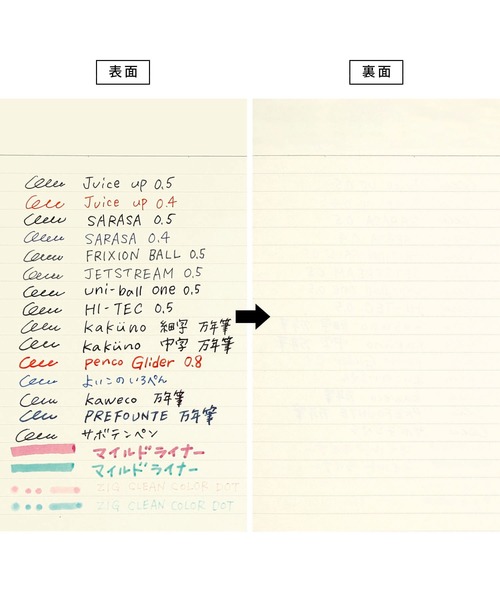 表面
裏面
Juice up 0.5
Juice up 0.4
SARASA 0.5
SARASA 0.4
FRIXION BALL 0.5
JETSTREAM 0.5
uni-ball one 0.5
HI-TEC 0.5
kaküno 細字 万年筆
kaküno 中字 万年筆
penco Glider 0.8
よいこのいろぺん
kaweco 万年筆
PREFOUNTE 万年筆
サボテンペン
マイルドライナー
マイルドライナー
ZIG CLEAN COLOR DOT
ZIG CLEAN COLOR DOT